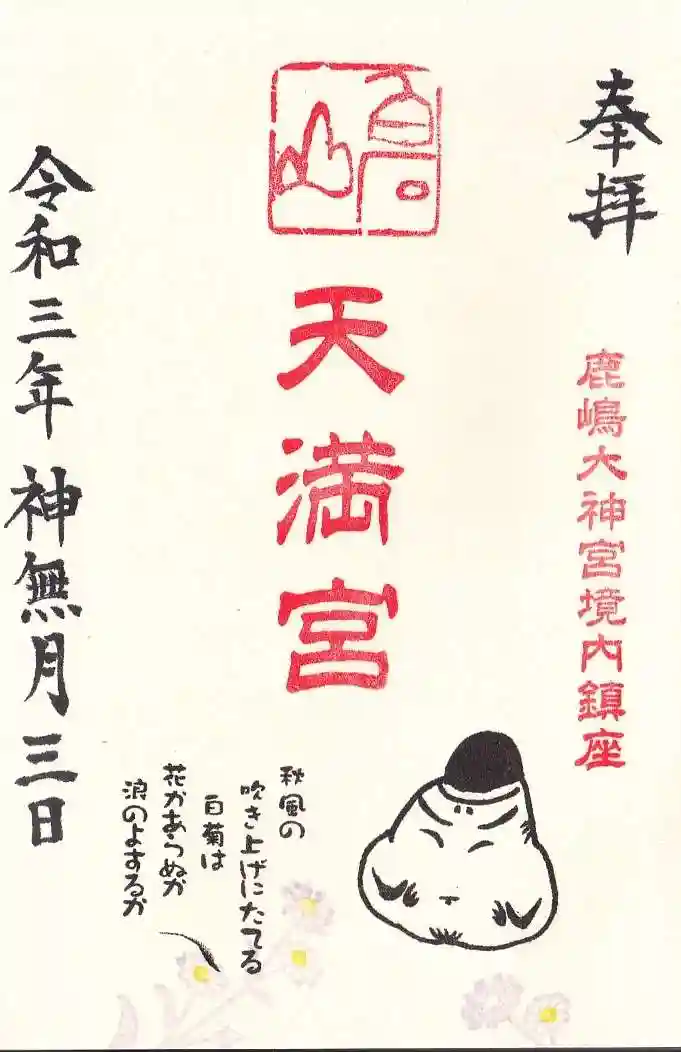 奉拝
鹿嶋大神宮境内鎮座
嶋
天満宮
秋風の
吹き上げにたてる
白菊は
花かあらぬか
浪のよするか
令和三年 神無月 三日